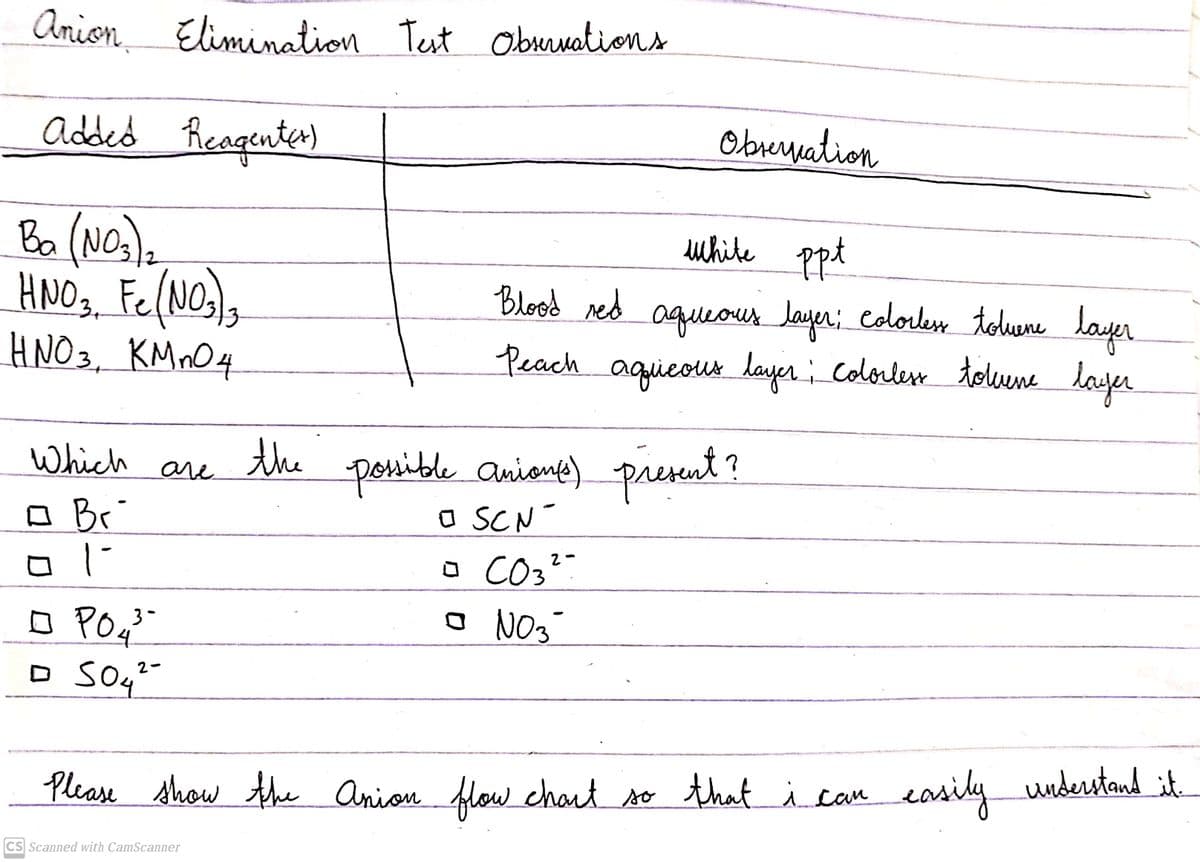 Anion Elimination Test Observations
Added Reagent(s) Observation
Ba(NO₃)₂ white ppt
HNO₃, Fe(NO₃)₃ Blood red aqueous layer; colorless toluene layer
HNO₃, KMnO₄ Peach aqueous layer; colorless toluene layer
Which are the possible anion(s) present?
□ Br⁻ □ SCN⁻
□ I⁻ □ CO₃²⁻
□ PO₄³⁻ □ NO₃⁻
□ SO₄²⁻
Please show the anion flow chart so that i can easily understand it.
CS Scanned with CamScanner